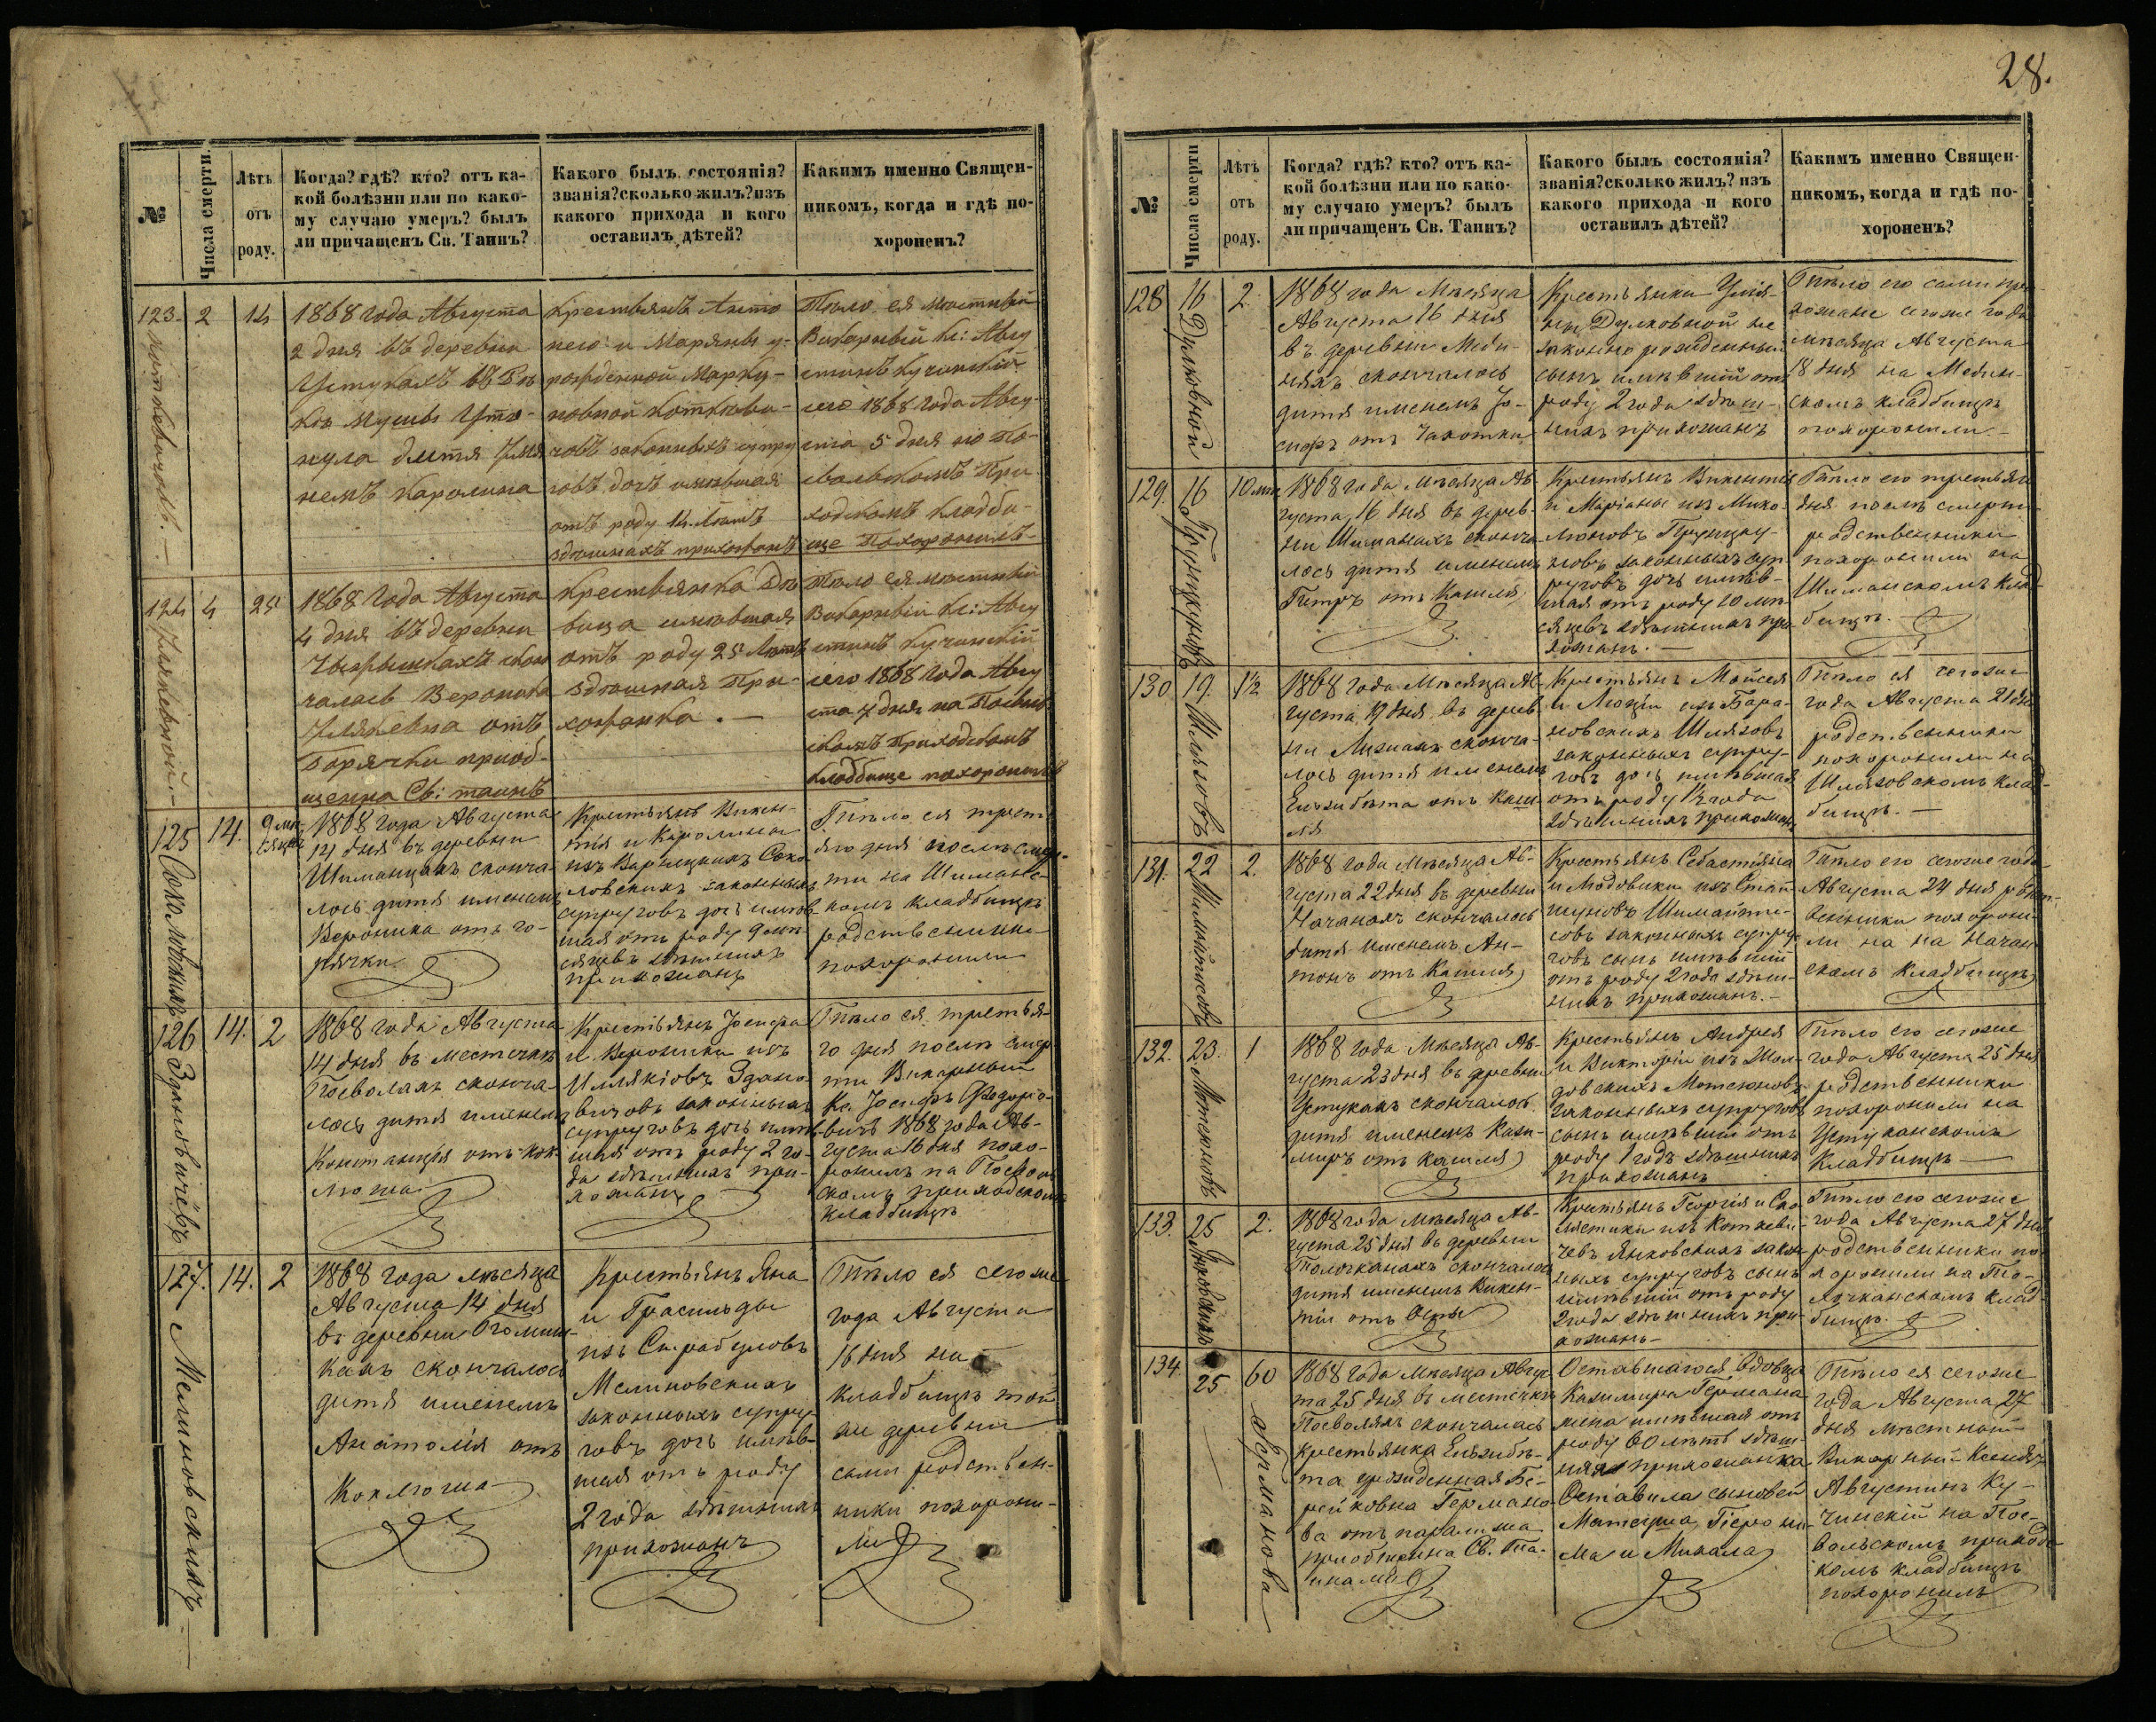 №
Числа смерти.
Лѣтъ
отъ
роду.
Когда? гдѣ? кто? отъ ка-
кой болѣзни или по како-
му случаю умеръ? былъ
ли причащенъ Св. Таинъ?
Какого былъ состоянія?
званія? сколько жилъ? изъ
какого прихода и кого
оставилъ дѣтей?
Какимъ именно Священ-
никомъ, когда и гдѣ по-
хороненъ?
123.
2
14
1868 года Августа
2 дня въ деревни
Устукахъ въ
нула дитя име
немъ Каролина
крестьянъ Анто
него и Маряны у-
рожденной Марку-
новъ законныхъ супру
говъ дочь имевшая
отъ роду 14 летъ
здешнихъ прихожанъ
Тело ея местный
Викарный Кс: Авгу
стинъ Кучинскій
сего 1868 года Авгу-
ста 5 дня по По-
свольскомъ При
ходскомъ кладби-
ще Похоронилъ
124
4
25
1868 года Августа
4 дня въ деревни
скон
чалась Вероника
отъ
Горячки приоб-
щенна Св: таинъ
крестьянка Де
вица имевшая
отъ роду 25 летъ
здешная При-
хожанка. —
Тело ея местный
Викарный Кс: Авгу
стинъ Кучинскій
сего 1868 года Авгу
ста 7 дня на Посволь
скомъ Приходскомъ
кладбище похоронилъ
125
14.
9 мѣ-
сяцевъ
Соколовскихъ
1868 года Августа
14 дня въ деревни
Шиманцахъ сконча-
лось дитя именемъ
Вероника отъ го-
рячки
Крестьянъ Викен-
тія и Каролины
изъ Соко-
ловскихъ законныхъ
супруговъ дочь имѣв-
шая отъ роду 9 мѣ-
сяцевъ здѣшнихъ
прихожанъ
Тѣло ея треть
яго дня послѣ смер-
ти на Шиманс
комъ кладбищѣ
родственники
похоронили
126
14.
2
Здановичёвъ
1868 года Августа
14 дня въ местечкѣ
Посволахъ сконча-
лось дитя именемъ
Констанція отъ кок-
люша
Крестьянъ Іосифа
и Вероники изъ
Здано-
вичовъ законныхъ
супруговъ дочь имѣв-
шая отъ роду 2 го-
да здѣшнихъ при-
хожанъ
Тѣло ея третья-
го дня послѣ смер
ти Викарный
Кс. Іосифъ Федоро-
вичъ 1868 года Ав-
густа 16 дня похо-
ронилъ на Посволь
скомъ приходскомъ
кладбищѣ
127.
14.
2
Мелиновскихъ
1868 года мѣсяца
Августа 14 дня
въ деревни
кахъ скончалось
дитя именемъ
Анатолія отъ
Коклюша
Крестьянъ Яна
и Грасильды
изъ Скрабуловъ
Мелиновскихъ
законныхъ супру-
говъ дочь имѣв-
шая отъ роду
2 года здѣшнихъ
прихожанъ
Тѣло ея сегоже
года Августа
16 дня на
кладбищѣ той
же деревни
сами родствен-
ники похорони-
ли
28.
№
Числа смерти
Лѣтъ
отъ
роду.
Когда? гдѣ? кто? отъ ка-
кой болѣзни или по како-
му случаю умеръ? былъ
ли причащенъ Св. Таинъ?
Какого былъ состоянія?
званія? сколько жилъ? изъ
какого прихода и кого
оставилъ дѣтей?
Какимъ именно Священ-
никомъ, когда и гдѣ по-
хороненъ?
128
16
2.
Дулковной
1868 года Мѣсяца
Августа 16 дня
въ деревни Меди-
няхъ скончалось
дитя именемъ Іо-
сифъ отъ Чахотки
Крестьянки
Дулковной не
законно рожденный
сынъ имѣвшій отъ
роду 2 года здѣш-
нихъ прихожанъ
Тѣло его сами при
хожане сегоже года
мѣсяца Августа
18 дня на Медин-
скомъ кладбищѣ
похоронили
129.
16
10 мѣс
1868 года Мѣсяца Ав-
густа 16 дня въ дерев-
ни Шиманахъ сконча
лось дитя именемъ
Петръ отъ Кашля
Крестьянъ Викентія
и Маріаны изъ Мико-
люновъ
новъ законныхъ суп
руговъ дочь имѣв-
шая отъ роду 10 мѣ-
сяцевъ здѣшнихъ при-
хожанъ. —
Тѣло его третьяго
дня послѣ смерти
родственники
похоронили на
Шиманскомъ клад
бищѣ.
130
19.
1½
Шляховъ
1868 года Мѣсяца Ав-
густа 19 дня въ дерев
ни сконча-
лось дитя именемъ
Елизабета отъ Каш
ля
Крестьянъ Мойсея
и Люціи изъ Бара-
новскихъ Шляховъ
законныхъ супру-
говъ дочь имѣвшая
отъ роду 1½ года
здѣшнихъ прихожанъ
Тѣло ея сегоже
года Августа 21 дня
родственники
похоронили на
Шляховскомъ клад-
бищѣ. —
131.
22
2.
1868 года Мѣсяца Ав-
густа 22 дня въ деревни
Начанахъ скончалось
дитя именемъ Ан-
тонъ отъ Кашля
Крестьянъ Себастіяна
и Людовики изъ
совъ законныхъ супру
говъ сынъ имѣвшій
отъ роду 2 года здѣш-
нихъ прихожанъ. —
Тѣло его сегоже года
Августа 24 дня родст-
венники похорони-
ли на на Начан
скомъ кладбищѣ
132.
23.
1
Мотекновъ
1868 года Мѣсяца Ав-
густа 23 дня въ деревни
Устукахъ скончалось
дитя именемъ Кази-
миръ отъ кашля
Крестьянъ Андрея
и Викторіи изъ
довскихъ Мотекновъ
законныхъ супруговъ
сынъ имѣвшій отъ
роду 1 годъ здѣшнихъ
прихожанъ
Тѣло его сегоже
года Августа 25 дня
родственники
похоронили на
Устуканскомъ
Кладбищѣ —
133.
25
2.
Янковскихъ
1868 года Мѣсяца Ав-
густа 25 дня въ деревни
скончалось
дитя именемъ Викен-
тій отъ Оспы
Крестьянъ Георгія и Ско
ластики изъ Коткеви-
чевъ Янковскихъ закон
ныхъ супруговъ сынъ
имѣвшій отъ роду
2 года здѣшнихъ при
хожанъ —
Тѣло его сегоже
года Августа 27 дня
родственники по
хоронили на
клад
бищѣ.
134.
25
60
Германова
1868 года Мѣсяца Авгус
та 25 дня въ местечкѣ
Посволяхъ скончалась
крестьянка Елизабе-
та урожденная Бе-
рейковна Германо-
ва отъ паралижа
приобщенна Св. Та-
инами
Оставшагося вдовца
Казимира Германа
жена имѣвшая отъ
роду 60 лѣтъ здѣш-
няя прихожанка
Оставила сыновей
Матеуша, Гіерони-
ма и Михала
Тѣло ея сегоже
года Августа 27
дня мѣстный
Викарный Ксендзъ
Августинъ Ку-
чинскій на Пос-
вольскомъ приходс
комъ кладбищѣ
похоронилъ